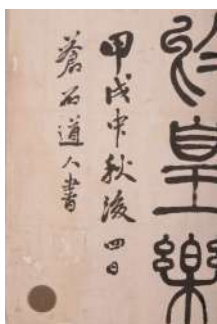 皇樂
甲戌中秋後四日
蒼石道人書